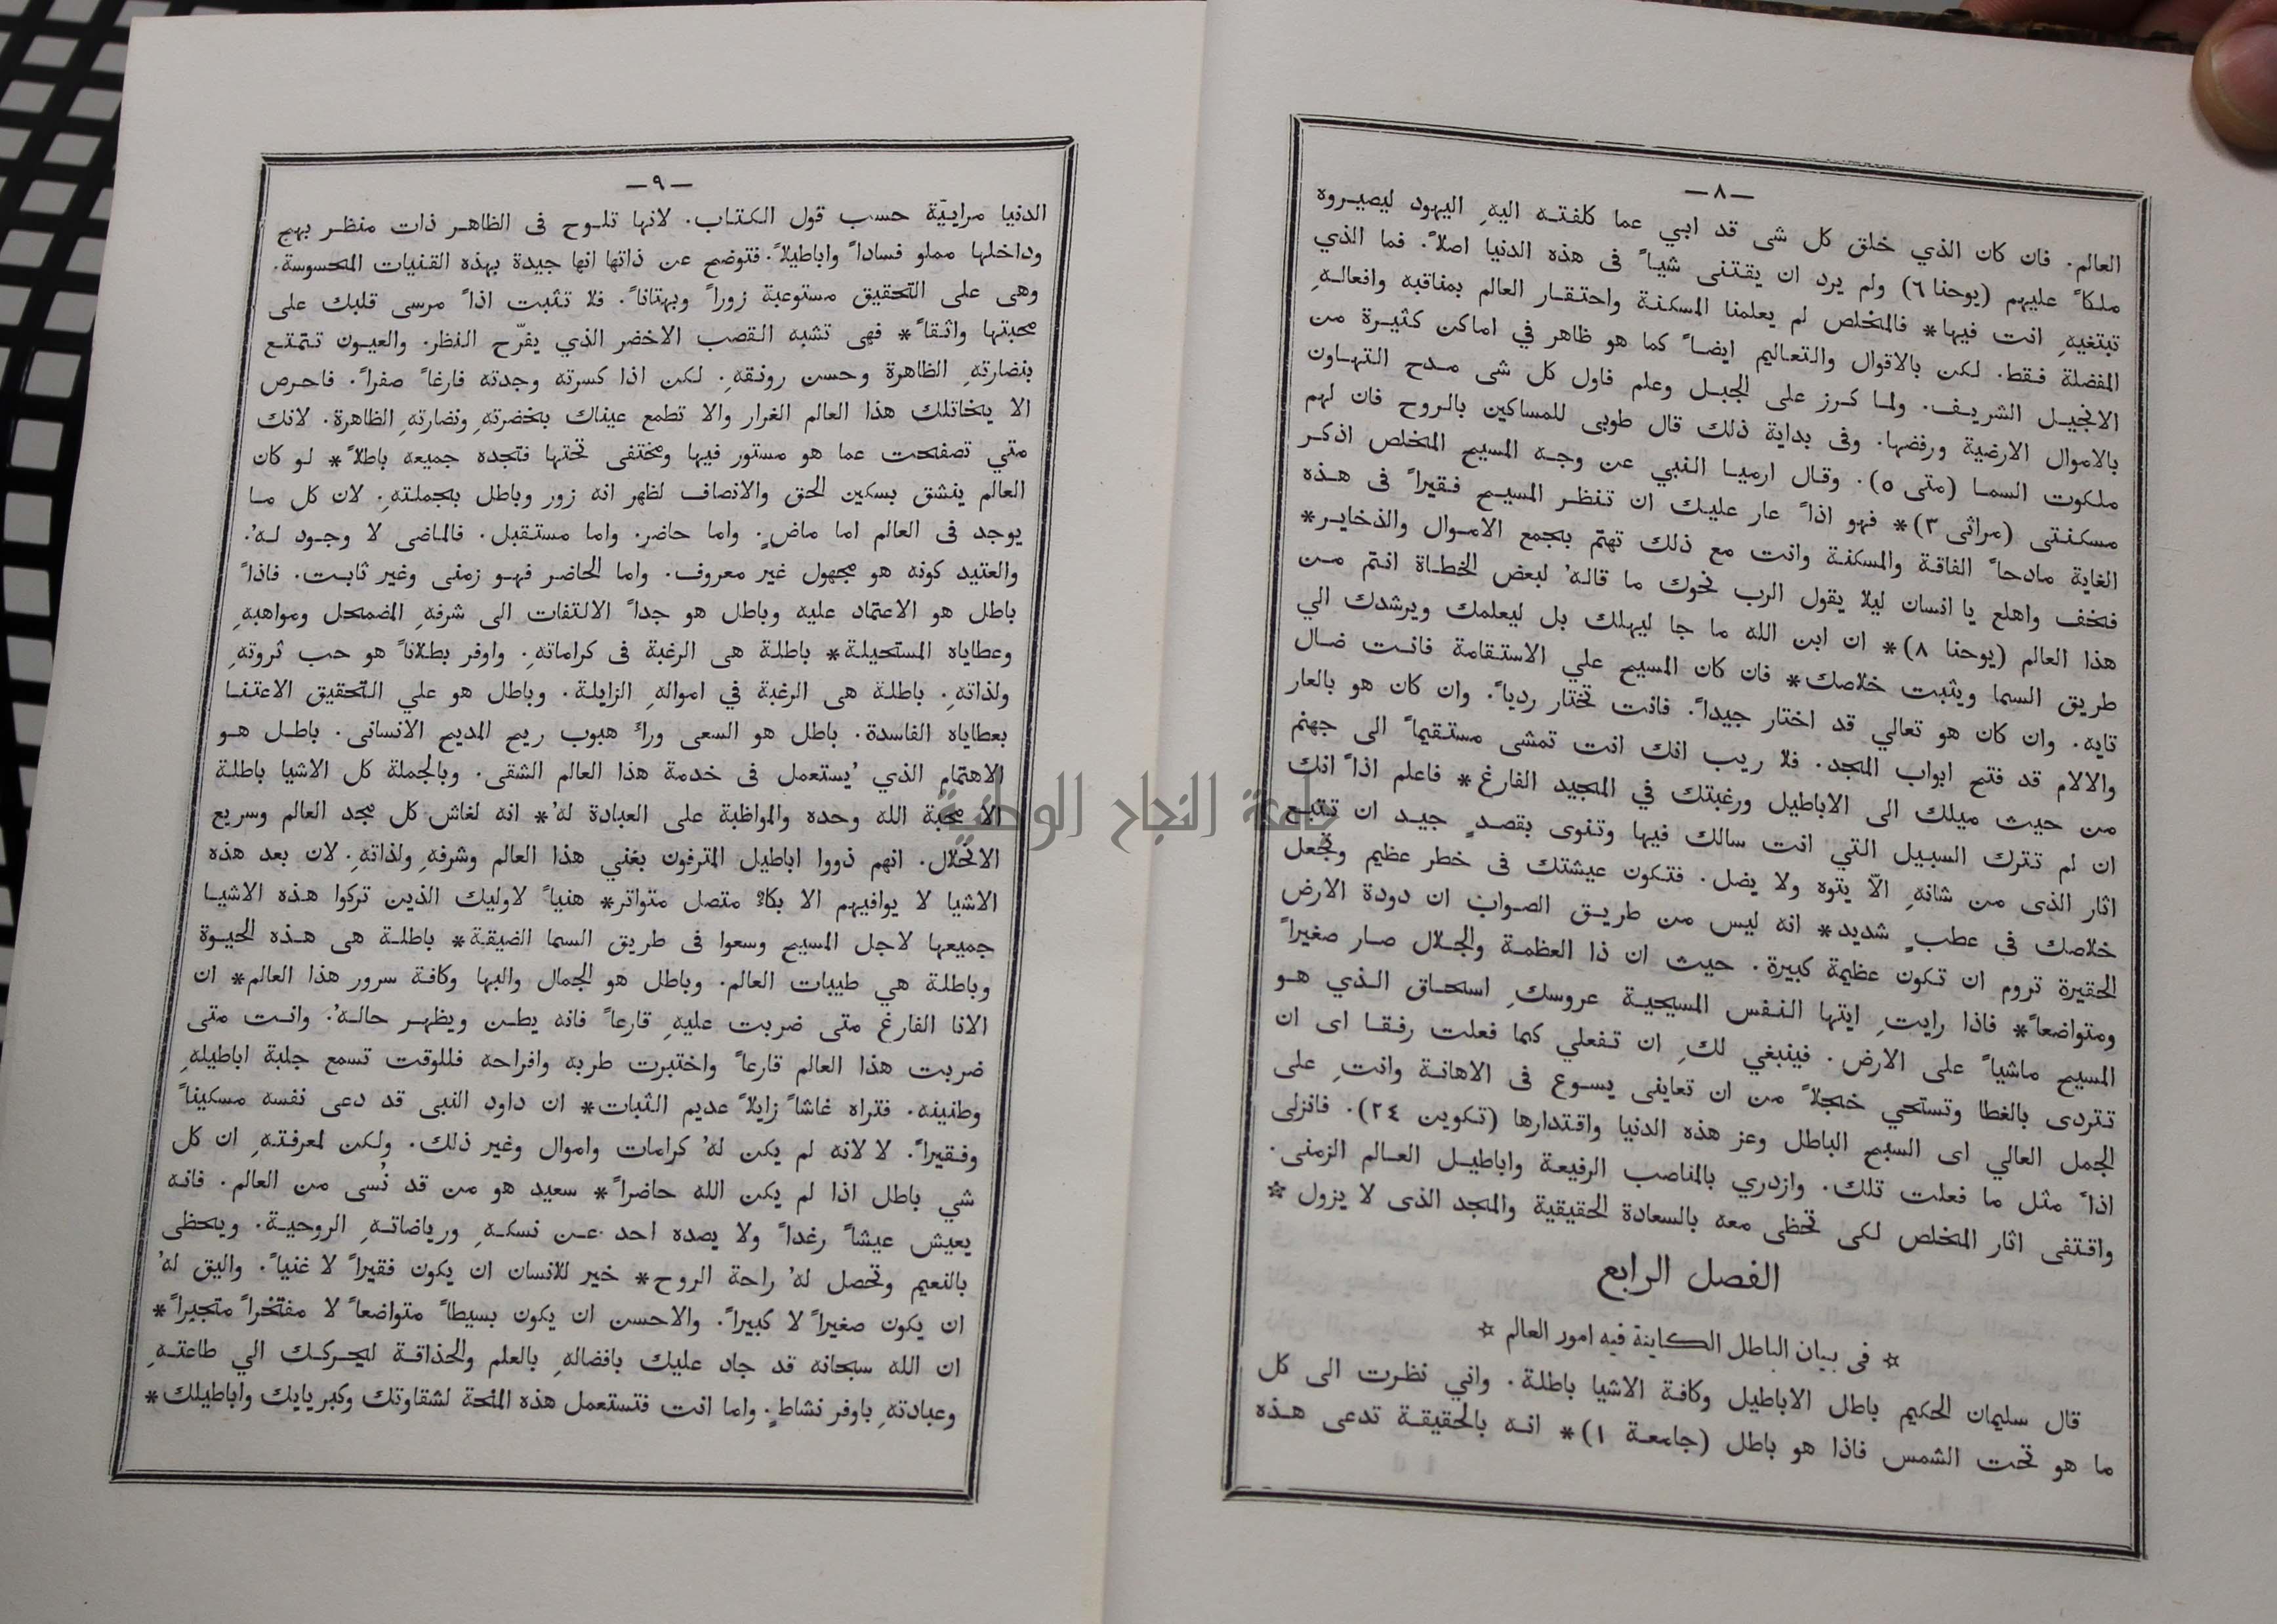 — ٨ —
العالم. فان كان الذي خلق كل شى قد ابي عما كلفته اليهِ اليهود ليصيروه
ملكاً عليهم (يوحنا ٦) ولم يرد ان يقتنى شياً فى هذه الدنيا اصلاً. فما الذي
تبتغيهِ انت فيها* فالمخلص لم يعلمنا المسكنة واحتقار العالم بمناقبه وافعالهِ
المفضلة فقط. لكن بالاقوال والتعاليم ايضاً كما هو ظاهر في اماكن كثيرة من
الانجيل الشريف. ولما كرز على الجبل وعلم فاول كل شى مدح التهاون
بالاموال الارضية ورفضها. وفى بداية ذلك قال طوبى للمساكين بالروح فان لهم
ملكوت السما (متى ٥). وقال ارميا النبي عن وجه المسيح المخلص اذكر
مسكنتى (مراثى ٣)* فهو اذاً عار عليك ان تنظر المسيح فقيراً فى هذه
الغاية مادحاً الفاقة والمسكنة وانت مع ذلك تهتم بجمع الاموال والذخاير*
فخف واهلع يا انسان ليلا يقول الرب نحوك ما قالهُ لبعض الخطاة انتم من
هذا العالم (يوحنا ٨)* ان ابن الله ما جا ليهلك بل ليعلمك ويرشدك الي
طريق السما ويثبت خلاصك* فان كان المسيح علي الاستقامة فانت ضال
تايه. وان كان هو تعالي قد اختار جيداً. فانت تختار ردياً. وان كان هو بالعار
والالام قد فتح ابواب المجد. فلا ريب انك انت تمشى مستقيماً الى جهنم
من حيث ميلك الى الاباطيل ورغبتك في المجيد الفارغ* فاعلم اذاً انك
ان لم تترك السبيل التي انت سالك فيها وتنوى بقصدٍ جيد ان تتبع
اثار الذى من شانهِ الّا يتوه ولا يضل. فتكون عيشتك فى خطر عظيم وتجعل
خلاصك فى عطبٍ شديد* انه ليس من طريق الصواب ان دودة الارض
الحقيرة تروم ان تكون عظيمة كبيرة. حيث ان ذا العظمة والجلال صار صغيراً
ومتواضعاً* فاذا رايتِ ايتها النفس المسيحية عروسكِ اسحاق الذي هو
المسيح ماشياً على الارض. فينبغي لكِ ان تفعلي كما فعلت رفقا اى ان
تتردى بالغطا وتستحي خجلاً من ان تعاينى يسوع فى الاهانة وانتِ على
الجمل العالي اى السبح الباطل وعز هذه الدنيا واقتدارها (تكوين ٢٤). فانزلى
اذاً مثل ما فعلت تلك. وازدري بالمناصب الرفيعة واباطيل العالم الزمنى.
واقتفى اثار المخلص لكى تحظى معه بالسعادة الحقيقية والمجد الذى لا يزول *
الفصل الرابع
* فى بيان الباطل الكاينة فيه امور العالم *
قال سليمان الحكيم باطل الاباطيل وكافة الاشيا باطلة. واني نظرت الى كل
ما هو تحت الشمس فاذا هو باطل (جامعة ١)* انه بالحقيقة تدعى هذه
— ٩ —
الدنيا مراييّة حسب قول الكتاب. لانها تلوح فى الظاهر ذات منظر بهج
وداخلها مملو فساداً واباطيلاً. فتوضح عن ذاتها انها جيدة بهذه القنيات المحسوسة.
وهى على التحقيق مستوعبة زوراً وبهتاناً. فلا تثبت اذاً مرسى قلبك على
محبتها واثقاً* فهى تشبه القصب الاخضر الذي يفرّح النظر. والعيون تتمتع
بنضارتهِ الظاهرة وحسن رونقهِ. لكن اذا كسرته وجدته فارغاً صفراً. فاحرص
الا يخاتلك هذا العالم الغرار والا تطمع عيناك بخضرتهِ ونضارتهِ الظاهرة. لانك
متي تصفحت عما هو مستور فيها ومختفى تحتها فتجده جميعه باطلاً* لو كان
العالم ينشق بسكين الحق والانصاف لظهر انه زور وباطل بجملتهِ. لان كل ما
يوجد فى العالم اما ماضٍ. واما حاضر. واما مستقبل. فالماضى لا وجود لهُ.
والعتيد كونه هو مجهول غير معروف. واما الحاضر فهو زمنى وغير ثابت. فاذاً
باطل هو الاعتماد عليه وباطل هو جداً الالتفات الى شرفهِ المضمحل ومواهبهِ
وعطاياه المستحيلة* باطلة هى الرغبة فى كراماتهِ. واوفر بطلاناً هو حب ثروتهِ
ولذاتهِ. باطلة هى الرغبة في اموالهِ الزايلة. وباطل هو علي التحقيق الاعتنا
بعطاياه الفاسدة. باطل هو السعى وراء هبوب ريح المديح الانسانى. باطل هو
الاهتمام الذي يُستعمل فى خدمة هذا العالم الشقى. وبالجملة كل الاشيا باطلة
الا محبة الله وحده والمواظبة على العبادة لهُ* انه لغاش كل مجد العالم وسريع
الانحلال. انهم ذووا اباطيل المترفون بغني هذا العالم وشرفهِ ولذاتهِ. لان بعد هذه
الاشيا لا يوافيهم الا بكاء متصل متواتر* هنياً لاوليك الذين تركوا هذه الاشيا
جميعها لاجل المسيح وسعوا فى طريق السما الضيقة* باطلة هى هذه الحيوة
وباطلة هي طيبات العالم. وباطل هو الجمال والبها وكافة سرور هذا العالم* ان
الانا الفارغ متى ضربت عليهِ قارعاً فانه يطن ويظهر حالهُ. وانت متى
ضربت هذا العالم قارعاً واختبرت طربه وافراحه فللوقت تسمع جلبة اباطيلهِ
وطنينه. فتراه غاشاً زايلاً عديم الثبات* ان داود النبى قد دعى نفسه مسكيناً
وفقيراً. لا لانه لم يكن لهُ كرامات واموال وغير ذلك. ولكن لمعرفتهِ ان كل
شي باطل اذا لم يكن الله حاضراً* سعيد هو من قد نُسى من العالم. فانه
يعيش عيشاً رغداً ولا يصده احد عن نسكهِ ورياضاتهِ الروحية. ويحظى
بالنعيم وتحصل لهُ راحة الروح* خير للانسان ان يكون فقيراً لا غنياً. واليق لهُ
ان يكون صغيراً لا كبيراً. والاحسن ان يكون بسيطاً متواضعاً لا مفتخراً متجبراً*
ان الله سبحانه قد جاد عليك بافضالهِ بالعلم والحذاقة ليحركك الي طاعتهِ
وعبادتهِ باوفر نشاطٍ. واما انت فتستعمل هذه المنحة لشقاوتك وكبريايك واباطيلك*
جامعة النجاح الوطنية